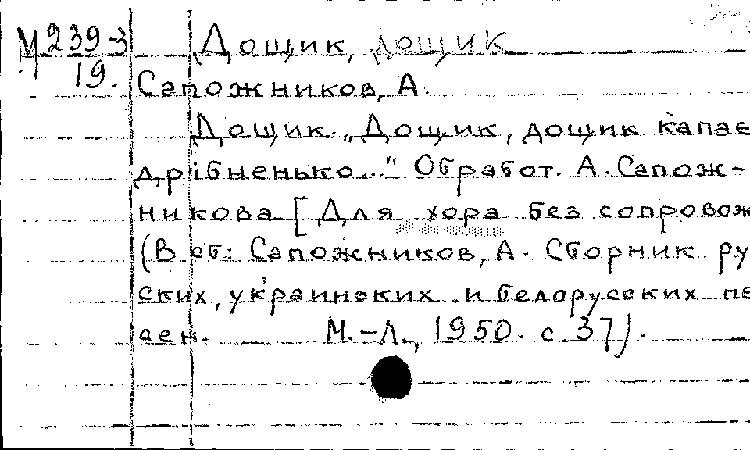 М 239-3 Дощик, дощик
19. Сапожников, А.
Дощик. "Дощик, дощик капає
дрібненько..." Обработ. А. Сапож-
никова [Для хора без сопровож
(В сб: Сапожников, А. Сборник ру
ских, украинских и белорусских пе
сен. М.-Л., 1950. с. 37).